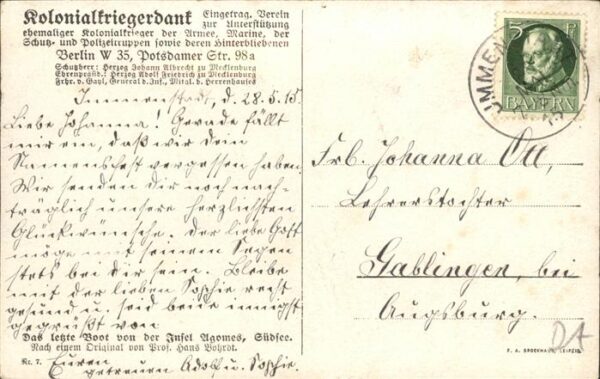 Kolonialkriegerdank Eingetrag. Verein
zur Unterstützung
ehemaliger Kolonialkrieger der Armee, Marine, der
Schutz- und Polizeitruppen sowie deren Hinterbliebenen
Berlin W 35, Potsdamer Str. 98a
Schutzherr: Herzog Johann Albrecht zu Mecklenburg
Ehrenpräsid.: Herzog Adolf Friedrich zu Mecklenburg
Frhr. v. Gayl, General d. Inf., Mitgl. d. Herrenhauses
Immenstadt, d. 28.5.15.
Liebe Johanna! Gerade fällt
mir ein, daß wir dein
Namensfest vergessen haben.
Wir senden dir noch nach-
träglich unsere herzlichsten
Glückwünsche. Der liebe Gott
möge mit seinem Segen
stets bei dir sein. Bleibe
mit der lieben Sophie recht
gesund u. seid beide innigst
gegrüßt von
Das letzte Boot von der Insel Agomes, Südsee.
Nach einem Original von Prof. Hans Bohrdt.
Nr. 7. Euren
getreuen Adolf u. Sophie.
5 Pf
BAYERN
IMMEN
Frl. Johanna Ott,
Lehrerstochter
Gablingen, bei
Augsburg.
F. A. BROCKHAUS, LEIPZIG